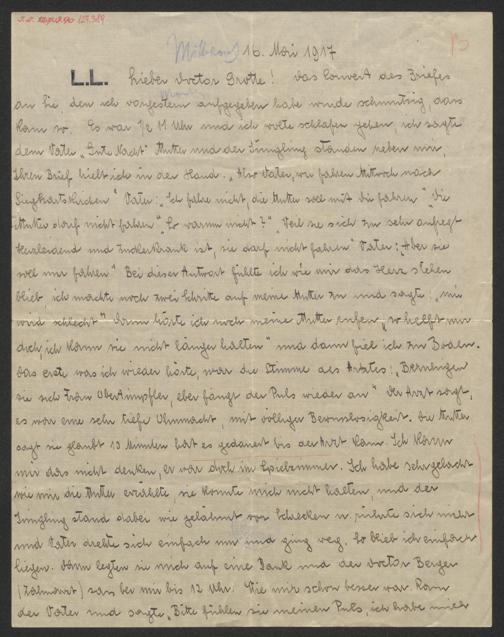 16. Mai 1917
L.L. Lieber Doctor Grotte! Das Couvert des Briefes
an Sie den ich vorgestern aufgegeben habe wurde schmutzig, das
kam so. Es war 1/2 11 Uhr und ich wollte schlafen gehen, ich sagte
dem Vater „Gute Nacht" Mutter und der Jüngling standen neben mir,
Ihren Brief hielt ich in der Hand. „Also Vater, wir fahren Mittwoch nach
Sieghartskirchen" Vater: „Ich fahre nicht, die Mutter soll mit dir fahren" „Die
Mutter darf nicht fahren" „So warum nicht?" „Weil sie sich zu sehr aufregt
Herzleidend und Zuckerkrank ist, sie darf nicht fahren" Vater: „Aber sie
soll nur fahren" Bei dieser Antwort fühlte ich wie mir das Herz stehen
blieb ich machte noch zwei Schritte auf meine Mutter zu und sagte: „mir
wird schlecht" dann hörte ich noch meine Mutter rufen „so helft mir
doch ich kann sie nicht länger halten" und dann fiel ich zu Boden.
Das erste was ich wieder hörte, war die Stimme des Arztes: „Beruhigen
sie sich Frau Oberkimpfler, eben fängt der Puls wieder an" Der Arzt sagt,
es war eine sehr tiefe Ohnmacht, mit völliger Bewusslosigkeit. Die Mutter
sagt sie glaubt 13 Minuten hat es gedauert bis der Arzt kam. Ich kann
mir das nicht denken, er war doch im Spielzimmer. Ich habe sehr gelacht
wie mir die Mutter erzählte sie konnte mich nicht halten, und der
Jüngling stand dabei wie gelähmt vor Schrecken u. rührte sich nicht
und Vater drehte sich einfach um und ging weg. So blieb ich einfach
liegen. Dann legten sie mich auf eine Bank und der Doctor Berger
(Zahnarzt) sass bei mir bis 12 Uhr. Wie mir schon besser war kam
der Vater und sagte „Bitte fühlen sie meinen Puls, ich habe mich